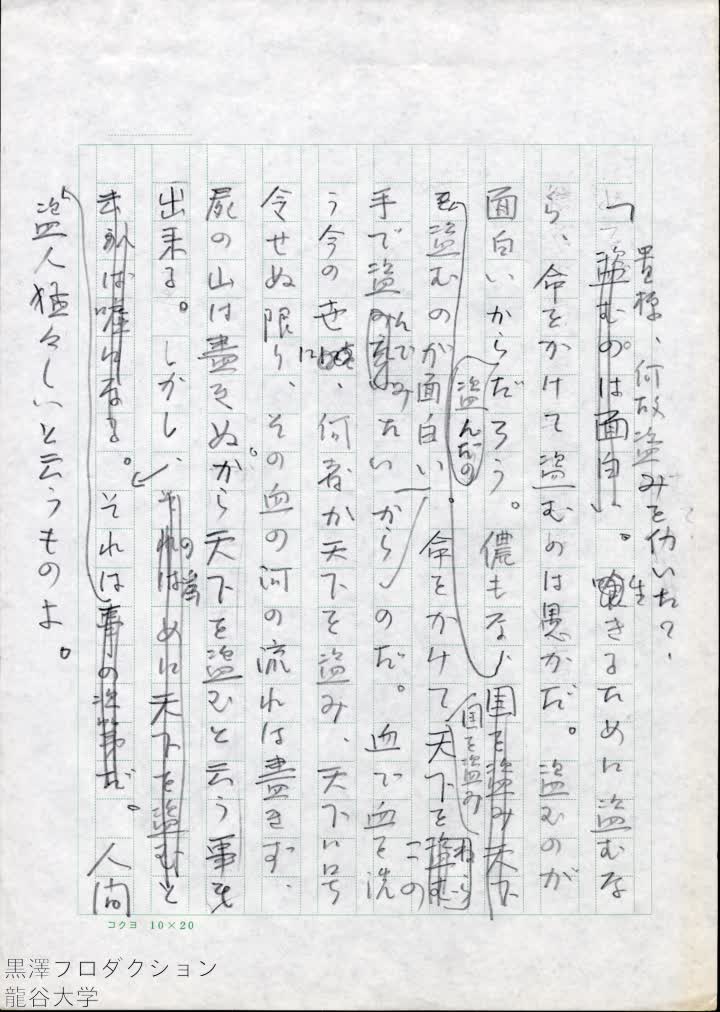 貴様、何故盗みを仂いた?
「盗むのは面白い。生きるために盗むな
ら、命をかけて盗むのは愚かだ。盗むのが
面白いからだろう。儂もな、国を盗み天下
盗んだの
国を盗み
盗むのが面白い。命をかけて天下を盗む
ねらう
手で盗みたいからのだ。血で血を洗
んでみ
この
う今の世に、何者か天下を盗み、天下に号
令せぬ限り、その血の河の流れは盡きず、
屍の山は盡きぬ。から天下を盗むと云う事も
出来る。しかし、それはめに天下を盗むと
の為
云えば嘘になる。それは事の次第だ。人間
盗人猛々しいと云うものよ。
コクヨ 10×20
黒澤プロダクション
龍谷大学